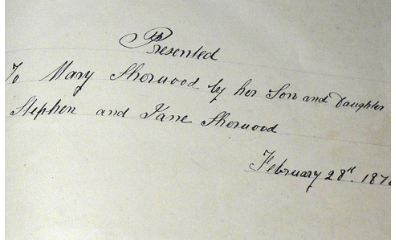 Presented
To Mary Sherwood by her Son and Daughter
Stephen and Jane Sherwood
February 28th